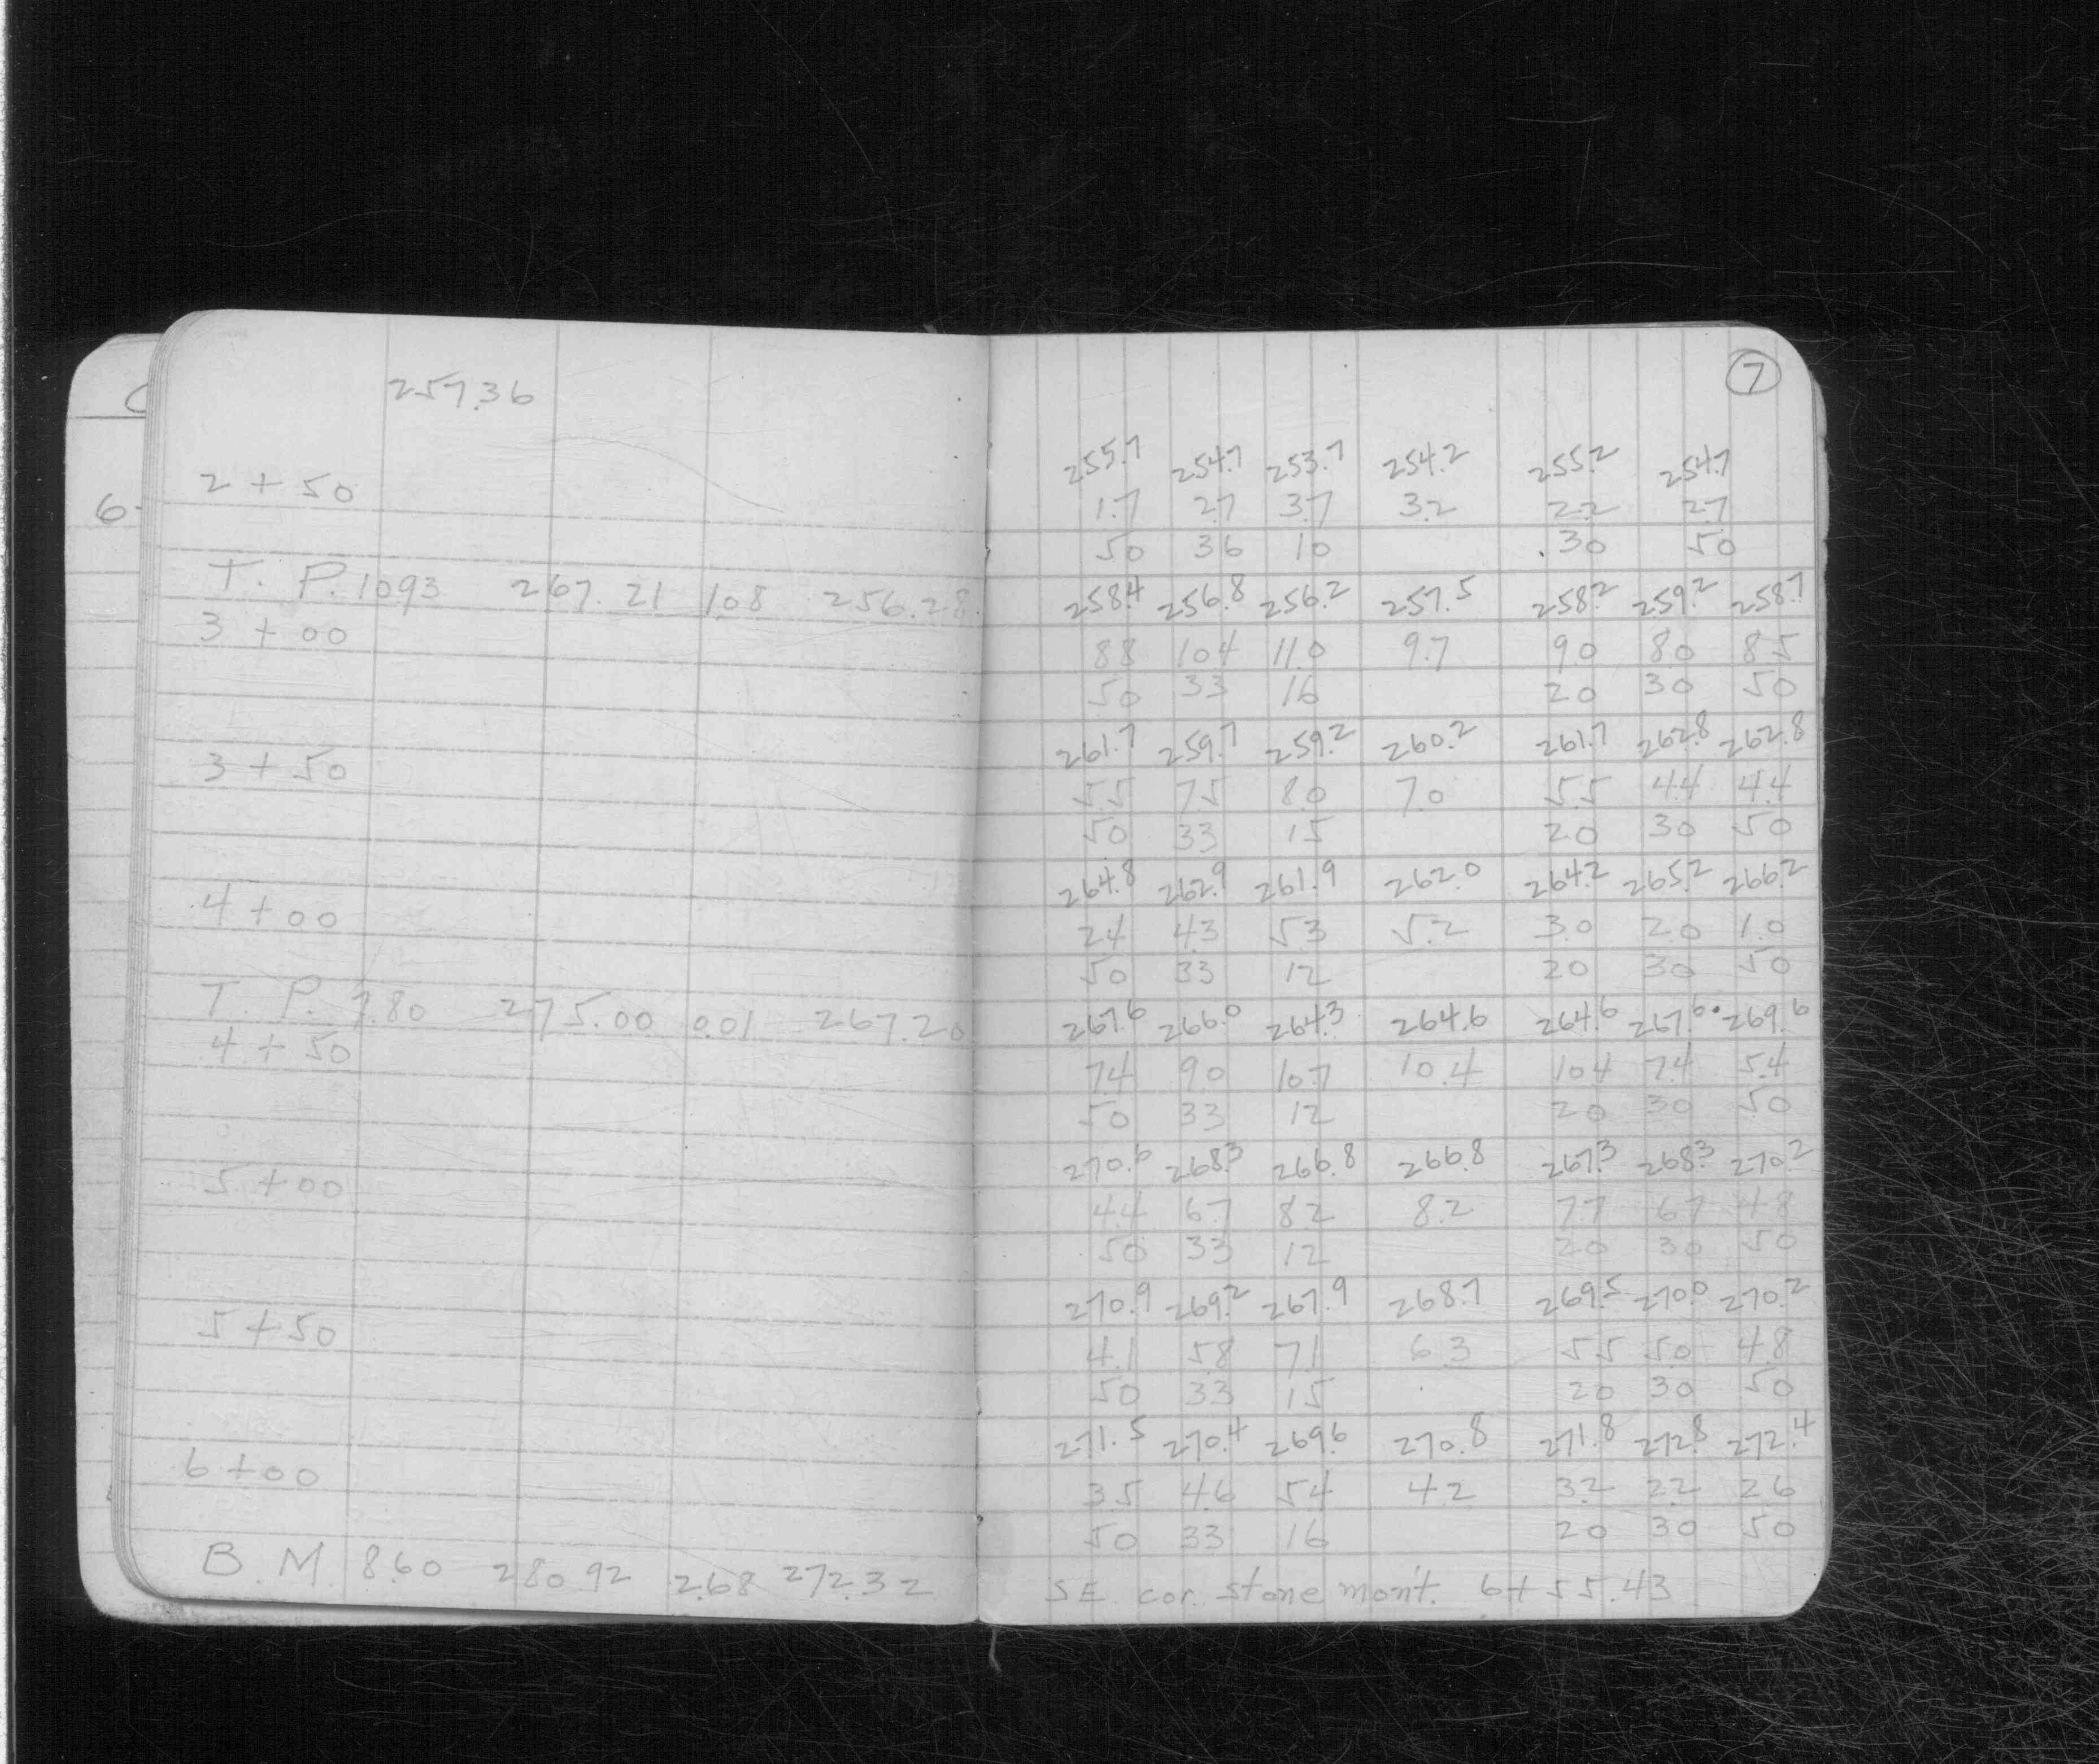 257.36
2+50
T. P. 10.93 267.21 1.08 256.28
3+00
3+50
4+00
T. P. 7.80 275.00 0.01 267.20
4+50
5+00
5+50
6+00
B. M. 8.60 280.92 2.68 272.32
6
7
255.7 254.7 253.7 254.2 255.2 254.7
1.7 2.7 3.7 3.2 2.2 2.7
50 36 10 30 50
258.4 256.8 256.2 257.5 258.2 259.2 258.7
8.8 10.4 11.0 9.7 9.0 8.0 8.5
50 33 16 20 30 50
261.7 259.7 259.2 260.2 261.7 262.8 262.8
5.5 7.5 8.0 7.0 5.5 4.4 4.4
50 33 15 20 30 50
264.8 262.9 261.9 262.0 264.2 265.2 266.2
2.4 4.3 5.3 5.2 3.0 2.0 1.0
50 33 12 20 30 50
267.6 266.0 264.3 264.6 264.6 267.6 269.6
7.4 9.0 10.7 10.4 10.4 7.4 5.4
50 33 12 20 30 50
270.6 268.3 266.8 266.8 267.3 268.3 270.2
4.4 6.7 8.2 8.2 7.7 6.7 4.8
50 33 12 20 30 50
270.9 269.2 267.9 268.7 269.5 270.0 270.2
4.1 5.8 7.1 6.3 5.5 5.0 4.8
50 33 15 20 30 50
271.5 270.4 269.6 270.8 271.8 272.8 272.4
3.5 4.6 5.4 4.2 3.2 2.2 2.6
50 33 16 20 30 50
SE. cor. stone mon't. 6+55.43